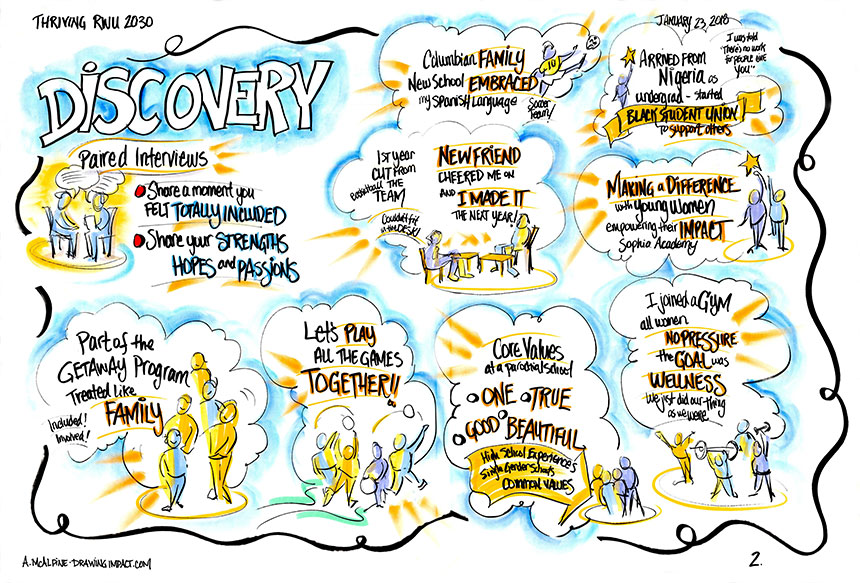 THRIVING RWU 2030
JANUARY 23, 2018
DISCOVERY
Paired Interviews
Share a moment you
FELT TOTALLY INCLUDED
Share your STRENGTHS
HOPES and PASSIONS
Columbian FAMILY
New School EMBRACED
my SPANISH LANGUAGE
Soccer
Team!
10
I was told
"There's no work
for people like
YOU"
ARRIVED FROM
Nigeria as
undergrad - started
BLACK STUDENT UNION
to support others
1ST year
CUT FROM
Basketball THE
TEAM
Couldn't fit
in the DESK!
NEW FRIEND
CHEERED ME ON
AND I MADE IT
THE NEXT YEAR!
MAKING a DIFFERENCE
with Young Women
empowering their IMPACT
Sophia Academy
Part of the
GETAWAY Program
Treated Like
FAMILY
Included!
Involved!
Let's PLAY
ALL THE GAMES
TOGETHER!!
Core Values
at a parochial school
ONE TRUE
GOOD BEAUTIFUL
High School Experiences
Single Gender Schools
COMMON VALUES
I joined a GYM
all women
NO PRESSURE
the GOAL was
WELLNESS
We just did our thing
as we were
A. McALPINE-DRAWINGIMPACT.COM
2.